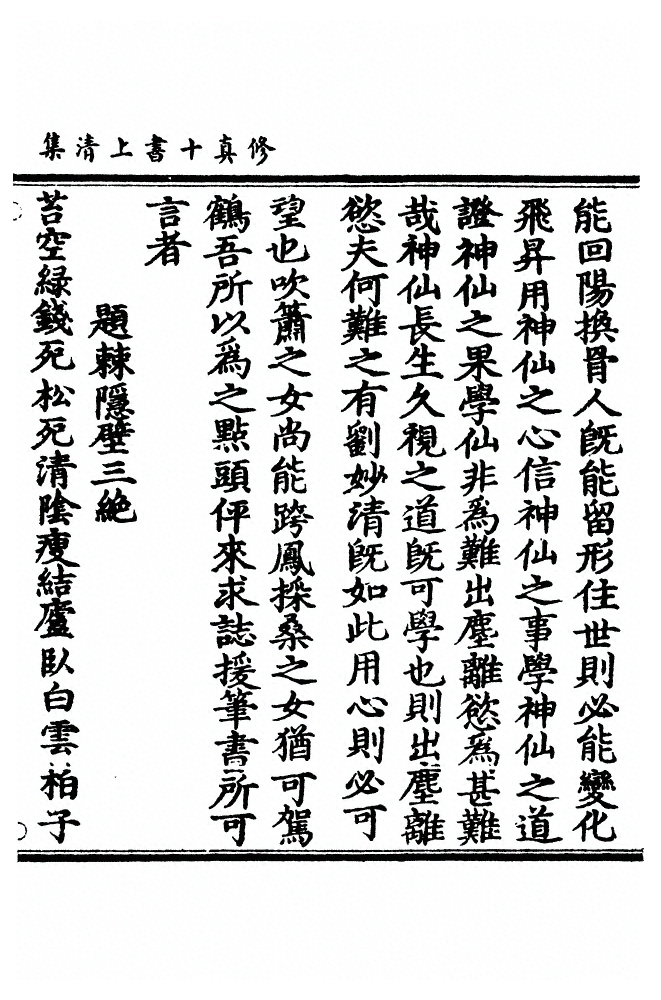 修真十書上清集
能回陽換骨人既能留形住世則必能變化
飛昇用神仙之心信神仙之事學神仙之道
證神仙之果學仙非為難出塵離慾為甚難
哉神仙長生久視之道既可學也則出塵離
慾夫何難之有劉妙清既如此用心則必可
望也吹簫之女尚能跨鳳採桑之女猶可駕
鶴吾所以為之點頭伻來求誌援筆書所可
言者
題棘隱壁三絶
苔空綠錢死松死清陰瘦結廬臥白雲柏子